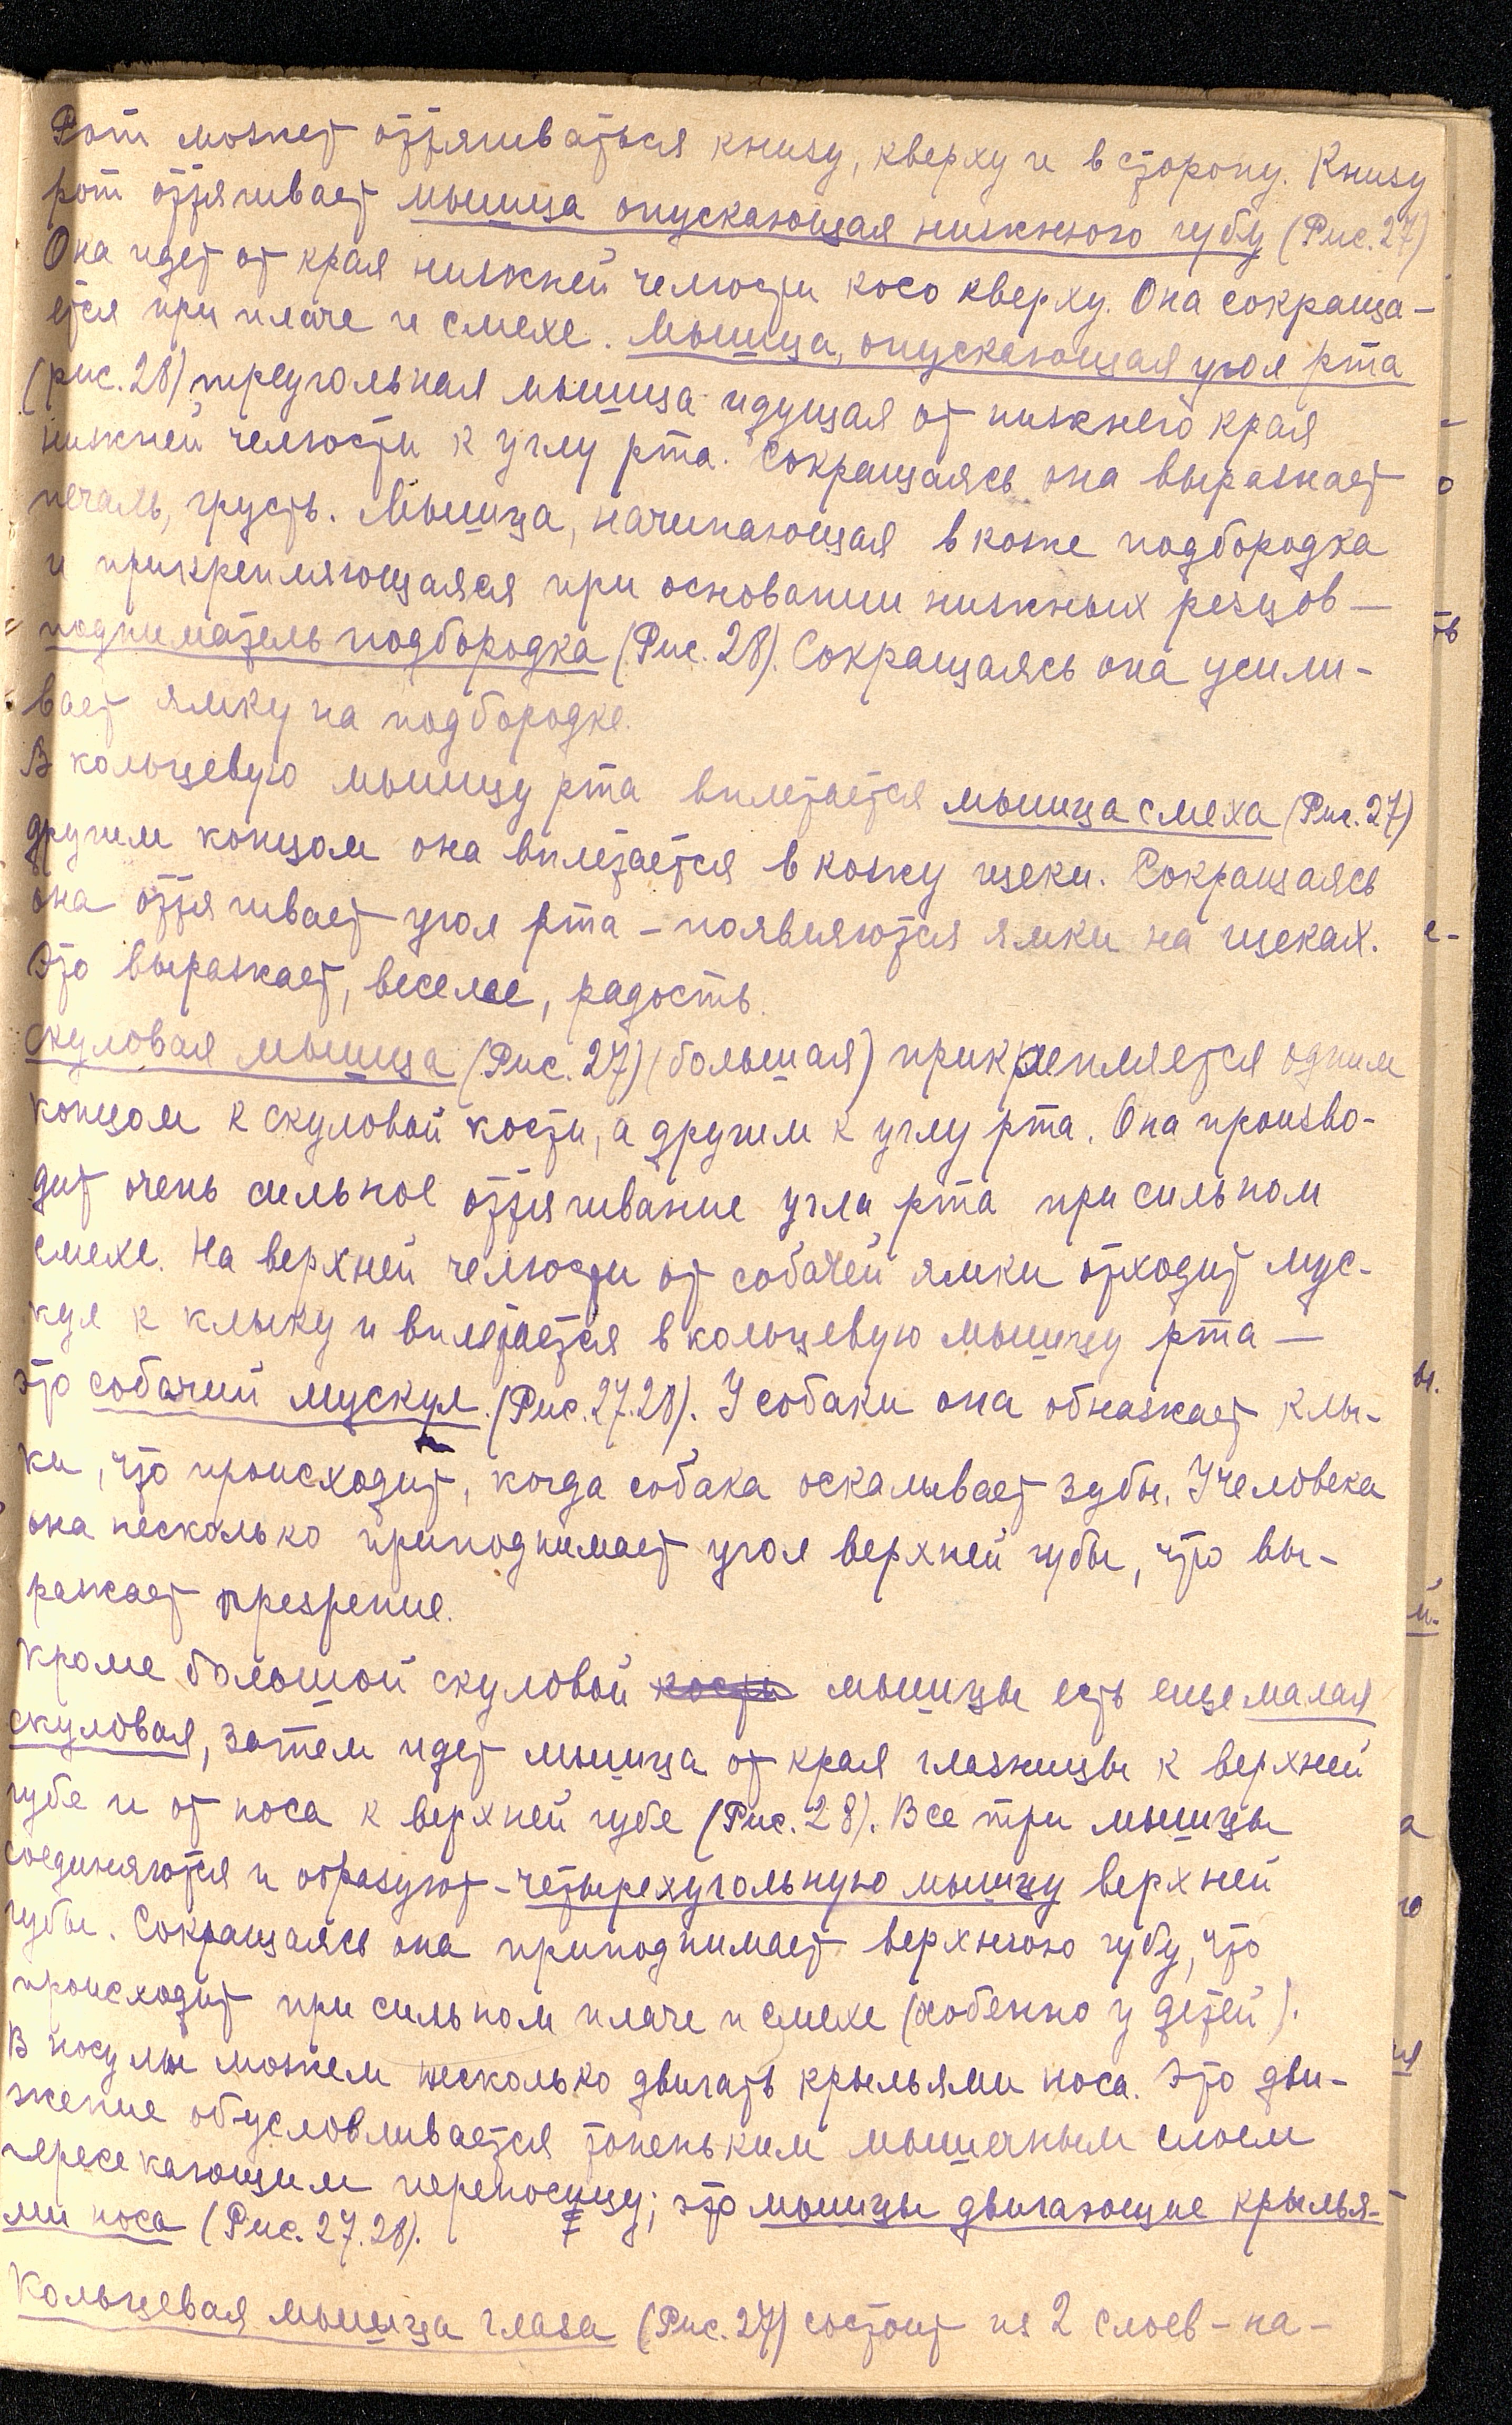 Рот может оттягиваться книзу, кверху и в сторону. Книзу
рот оттягивает мышца опускающая нижнюю губу (Рис. 27)
Она идет от края нижней челюсти косо кверху. Она сокраща-
ется при плаче и смехе. Мышца, опускающая угол рта
(рис. 28) треугольная мышца идущая от нижнего края
нижней челюсти к углу рта. Сокращаясь она выражает
печаль, грусть. Мышца, начинающая в коже подбородка
и прикрепляющаяся при основании нижных резцов —
подниматель подбородка (Рис. 28). Сокращаясь она усили-
вает ямку на подбородке.
В кольцевую мышцу рта вплетается мышца смеха (Рис. 27)
другим концом она вплетается в кожу щеки. Сокращаясь
она оттягивает угол рта – появляются ямки на щеках.
Это выражает, веселье, радость.
Скуловая мышца (Рис. 27) (большая) прикрепляется одним
концом к скуловой кости, а другим к углу рта. Она произво-
дит очень сильное оттягивание угла рта при сильном
смехе. На верхней челюсти от собачей ямки отходит мус-
кул к клыку и вплетается в кольцевую мышцу рта —
это собачий мускул. (Рис. 27.28). У собаки она обнажает клы-
ки, что происходит, когда собака оскаливает зубы. У человека
она несколько приподнимает угол верхней губы, что вы-
ражает презрение.
Кроме большой скуловой кости мышцы есть еще малая
скуловая, затем идет мышца от края глазницы к верхней
губе и от носа к верхней губе (Рис. 28). Все три мышцы
соединяются и образуют – четырехугольную мышцу верхней
губы. Сокращаясь она приподнимает верхнюю губу, что
происходит при сильном плаче и смехе (особенно у детей).
В носу мы можем несколько двигать крыльями носа. Это дви-
жение обусловливается тоненьким мышечным слоем
пересекающим переносицу; это мышцы двигающие крылья-
ми носа (Рис. 27.28).
Кольцевая мышца глаза (Рис. 27) состоит из 2 слоев – на-